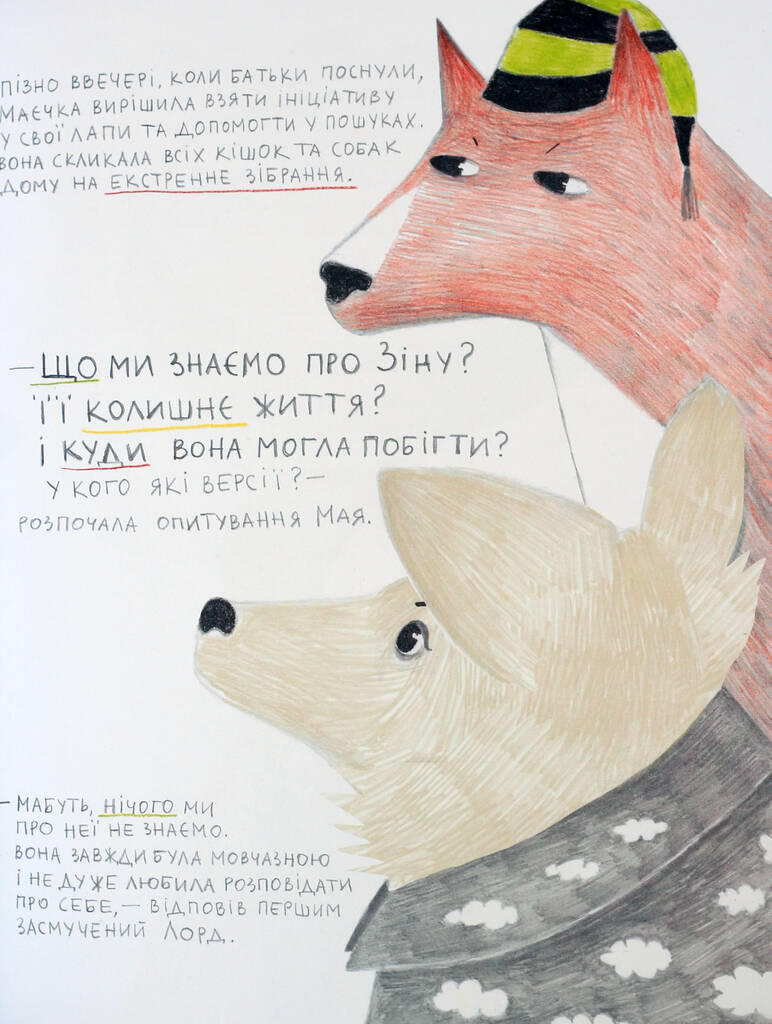 ПІЗНО ВВЕЧЕРІ, КОЛИ БАТЬКИ ПОСНУЛИ,
МАЄЧКА ВИРІШИЛА ВЗЯТИ ІНІЦІАТИВУ
У СВОЇ ЛАПИ ТА ДОПОМОГТИ У ПОШУКАХ.
ВОНА СКЛИКАЛА ВСІХ КІШОК ТА СОБАК
ДОМУ НА ЕКСТРЕННЕ ЗІБРАННЯ.
— ЩО МИ ЗНАЄМО ПРО ЗІНУ?
ЇЇ КОЛИШНЄ ЖИТТЯ?
І КУДИ ВОНА МОГЛА ПОБІГТИ?
У КОГО ЯКІ ВЕРСІЇ? —
РОЗПОЧАЛА ОПИТУВАННЯ МАЯ.
— МАБУТЬ, НІЧОГО МИ
ПРО НЕЇ НЕ ЗНАЄМО.
ВОНА ЗАВЖДИ БУЛА МОВЧАЗНОЮ
І НЕ ДУЖЕ ЛЮБИЛА РОЗПОВІДАТИ
ПРО СЕБЕ, — ВІДПОВІВ ПЕРШИМ
ЗАСМУЧЕНИЙ ЛОРД.